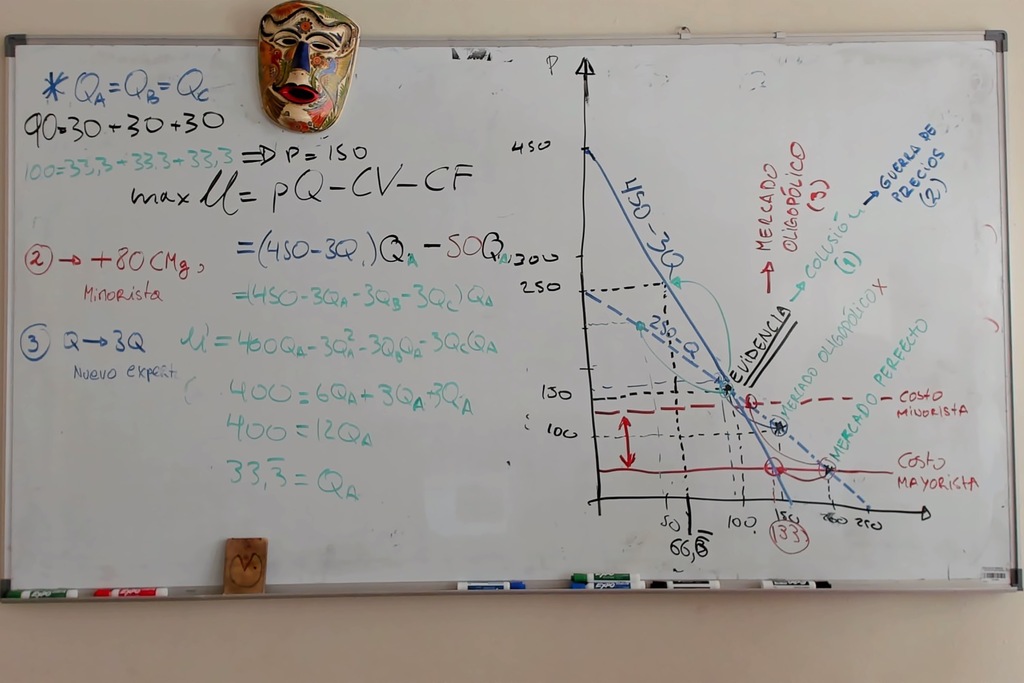 * QA=QB=QC
90=30+30+30
100=33,3+33.3+33,3 ⇒ P=150
max U= pQ-CV-CF
② → +80 CMg,
Minorista
=(450-3Q)QA-50QA
=(450-3QA-3QB-3QC)QA
③ Q→3Q
U'=400QA-3QA²-3QBQA-3QCQA
400=6QA+3QA+3QA
400=12QA
33,3=QA
P
450
300
250
150
100
50
66,6
100
150
133
200
250
450-3Q
250-Q
EVIDENCIA
→ MERCADO
OLIGOPÓLICO
(3)
→ COLUSIÓN
(1)
→ GUERRA DE
PRECIOS
(2)
MERCADO OLIGOPÓLICO X
MERCADO PERFECTO
COSTO
MINORISTA
COSTO
MAYORISTA
EXPO
EXPO